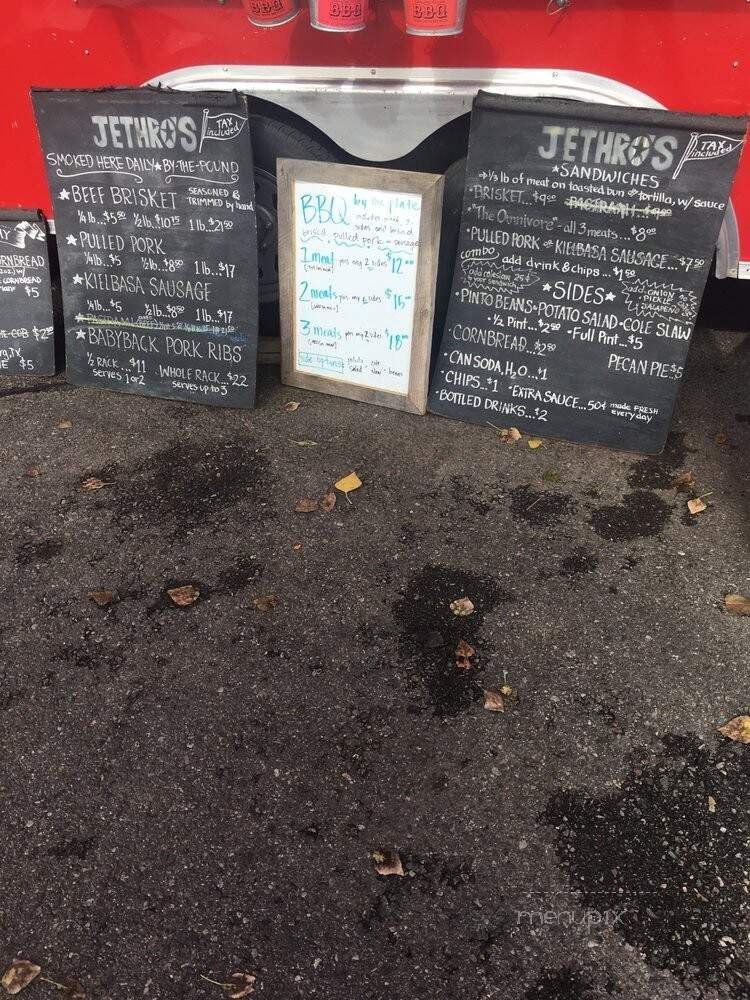 BBQ
BBQ
BBQ
CORNBREAD
$5
$2
$5
JETHRO'S TAX included
SMOKED HERE DAILY★BY-THE-POUND
★BEEF BRISKET SEASONED & TRIMMED by hand
1/4 lb...$5 50 1/2 lb..$10 75 1 lb..$21 50
★PULLED PORK
1/4 lb..$5 1/2 lb..$8 50 1 lb..$17
★KIELBASA SAUSAGE
1/4 lb..$5 1/2 lb..$8 50 1 lb..$17
★BABYBACK PORK RIBS
1/2 RACK...$11 WHOLE RACK...$22
serves 1 or 2 serves up to 3
BBQ by the plate
includes
sides and bread
pulled pork - sausage
1 meat plus any 2 sides $12 00
2 meats plus any 2 sides $15
3 meats plus any 2 sides $18
Side options potato salad cole slaw beans
JETHRO'S TAX included
★SANDWICHES
→1/3 lb of meat on toasted bun or tortilla, w/ sauce
•BRISKET...$9 00
•"The Omnivore"-all 3 meats...$8 00
•PULLED PORK or KIELBASA SAUSAGE...$7 50
combo add drink & chips...$1 50
add coleslaw 75¢ to any sandwich
★SIDES★
add ONION, PICKLE, JALAPEÑO
•PINTO BEANS•POTATO SALAD•COLE SLAW
•1/2 Pint...$2 50 •Full Pint...$5
•CORNBREAD...$2 50 PECAN PIE $5
•CAN SODA, H2O...$1
•CHIPS..$1 •EXTRA SAUCE...50¢ made FRESH everyday
BOTTLED DRINKS...$2
menupix